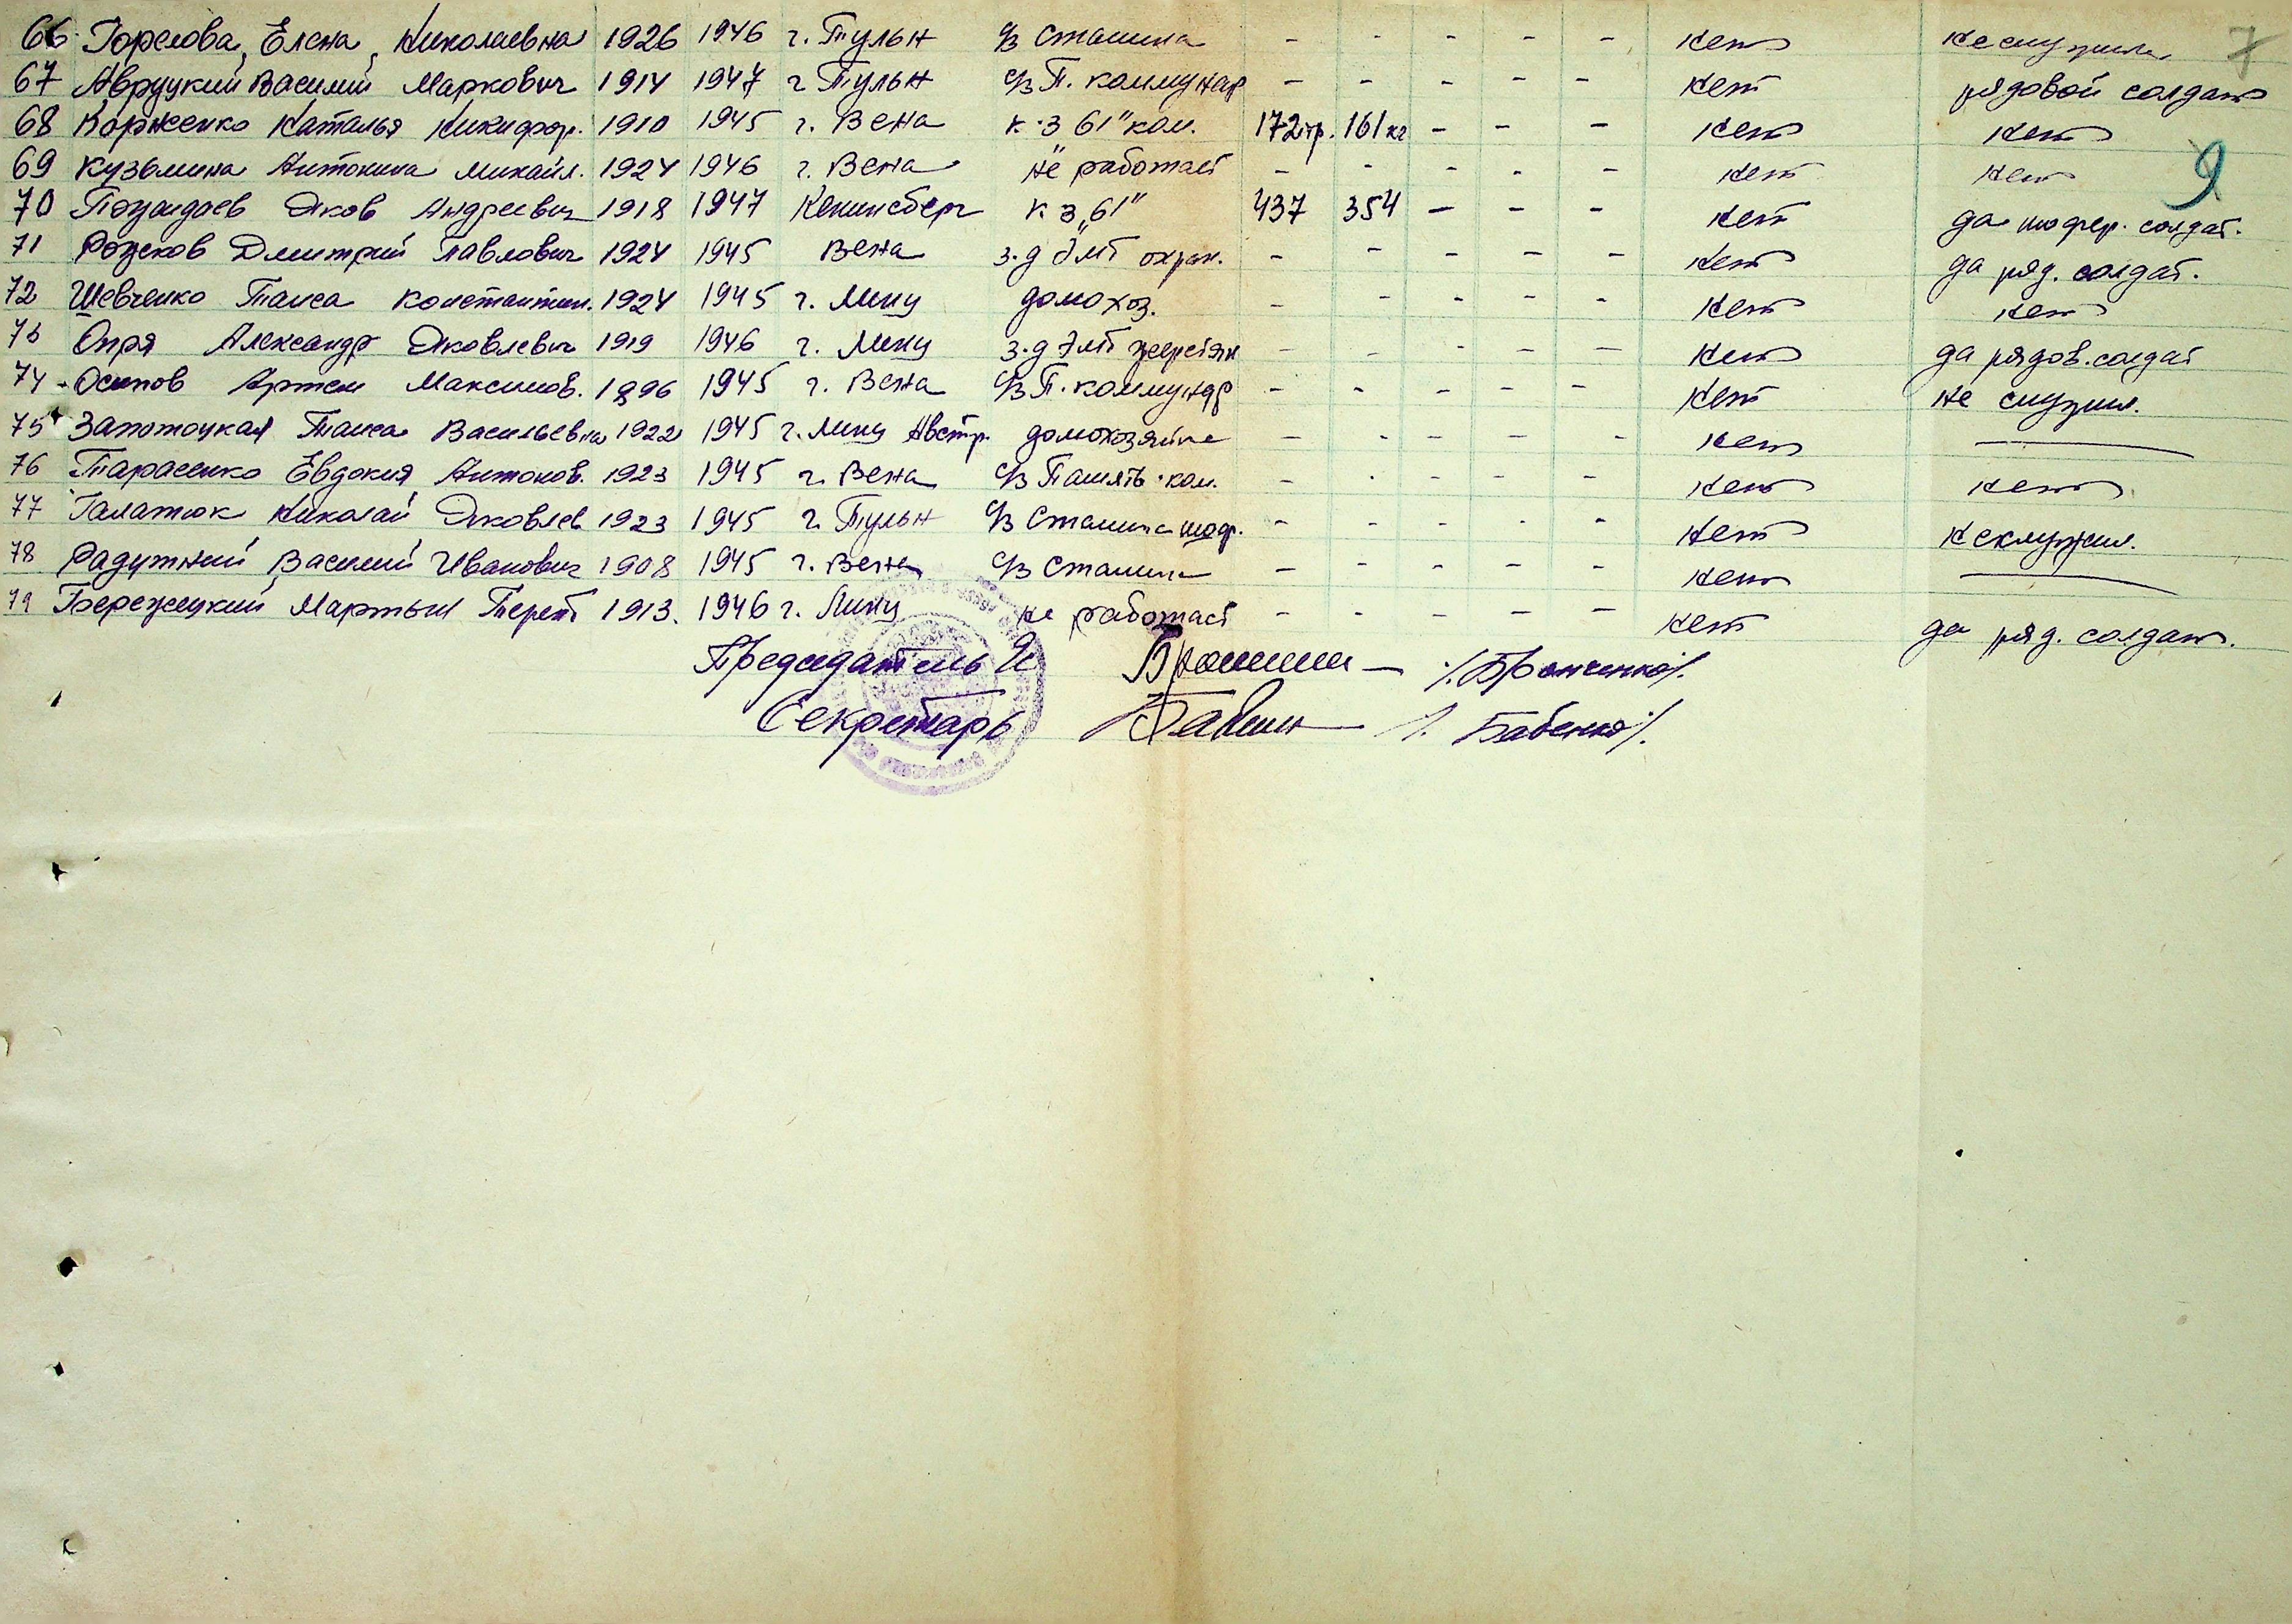 66 Горелова Елена Николаевна 1926 1946 г. Тульн с/з Сталина - - - - - нет не служила 7
67 Авруцкий Василий Маркович 1914 1947 г Тульн с/з П. коммунар - - - - - нет рядовой солдат
68 Корженко Наталья Никифор. 1910 1945 г. Вена к-з "61" ком. 172 тр. 161 кг - - - нет нет
69 Кузьмина Антонина Михайл. 1924 1946 г. Вена не работает - - - - - нет нет 9
70 Яков Андреевич 1918 1947 Кенинсберг к з "61" 437 354 - - - нет да шофер. солдат.
71 Рожков Дмитрий Павлович 1924 1945 Вена з-д охран. - - - - - нет да ряд. солдат.
72 Шевченко Таиса Константин. 1924 1945 г. Линц домохоз. - - - - - нет нет
73 Опря Александр Яковлевич 1919 1946 г. Линц з-д - - - - - нет да рядов. солдат
74 Осипов Артем Максимов. 1896 1945 г. Вена с/з П. коммунар - - - - - нет не служил.
75 Запотоцкая Таиса Васильевна 1922 1945 г. Линц Австр. домохозяйка - - - - - нет —
76 Тарасенко Евдокия Антонов. 1923 1945 г. Вена с/з Память ком. - - - - - нет нет
77 Галатюк Николай Яковлев 1923 1945 г. Тульн с/з Сталина шоф. - - - - - нет не служил.
78 Радутний Василий Иванович 1908 1945 г. Вена с/з Сталина - - - - - нет —
79 Бережецкий Мартын Терент 1913. 1946 г. Линц не работает - - - - - нет да ряд. солдат.
Председатель /Бронченко/.
Секретарь /Бабенко/.